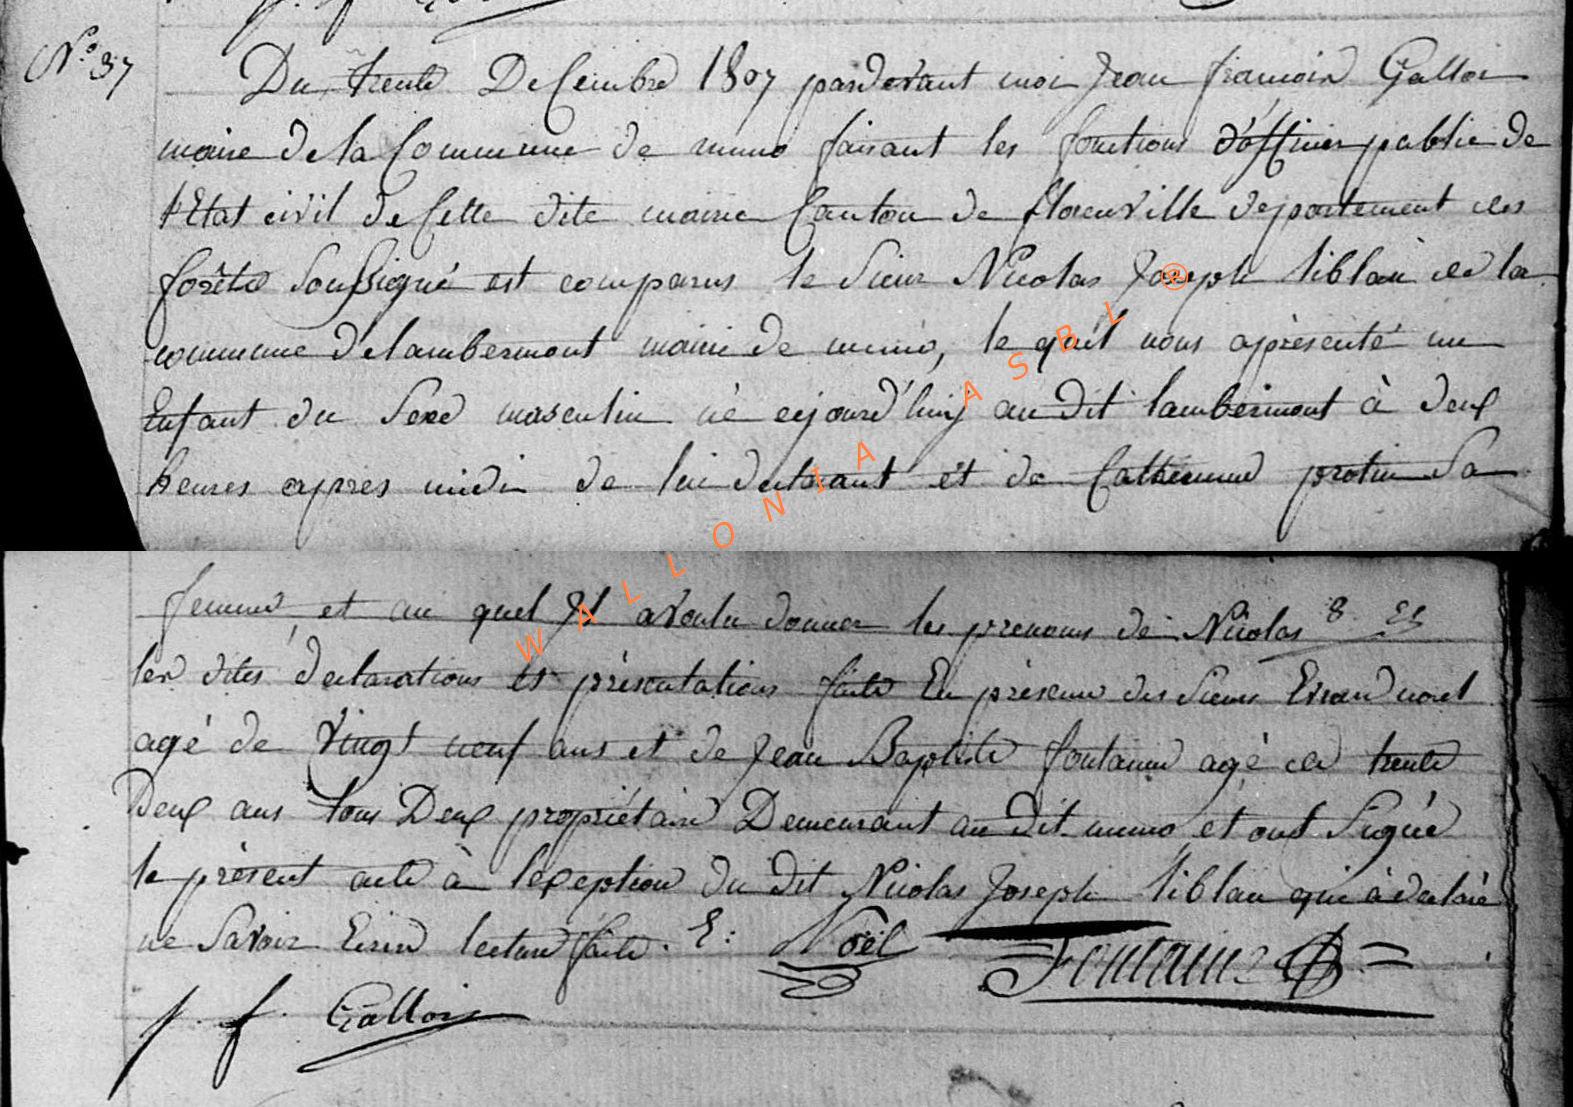 N.° 37
Du trente Decembre 1807 pardevant moi Jean francoir Gallois
maire de la Commune de muno faisant les fonctions d'officier public de
l'Etat civil de Cette dite mairie Canton de florenville departement des
forêts Soussigné est comparus le Sieur Nicolas Joseph liblan de la
commune de lambermont mairie de muno, le quél nous aprèsenté un
Enfant du Sexe masculin né cejourd'huij au dit lambermont à deux
heures apres midi de lui declarant et de Catherinne protin Sa
femme, et au quel Jl avoulu donner les prenoms de Nicolas Et
les dites declarations et présentations faite En présence des Sieurs Evrard noel
agé de Vingt neuf ans et de Jean Baptiste fontaine agé de trente
Deux ans tous Deux propriétaire Demeurant au dit muno et ont Signé
le présent acte à lexception du dit Nicolas Joseph liblan qui à declaré
ne Savoir Ecrire lecture faite. E: Noël Fontaine
j. f. Gallois
WALLONIA ASBL ®